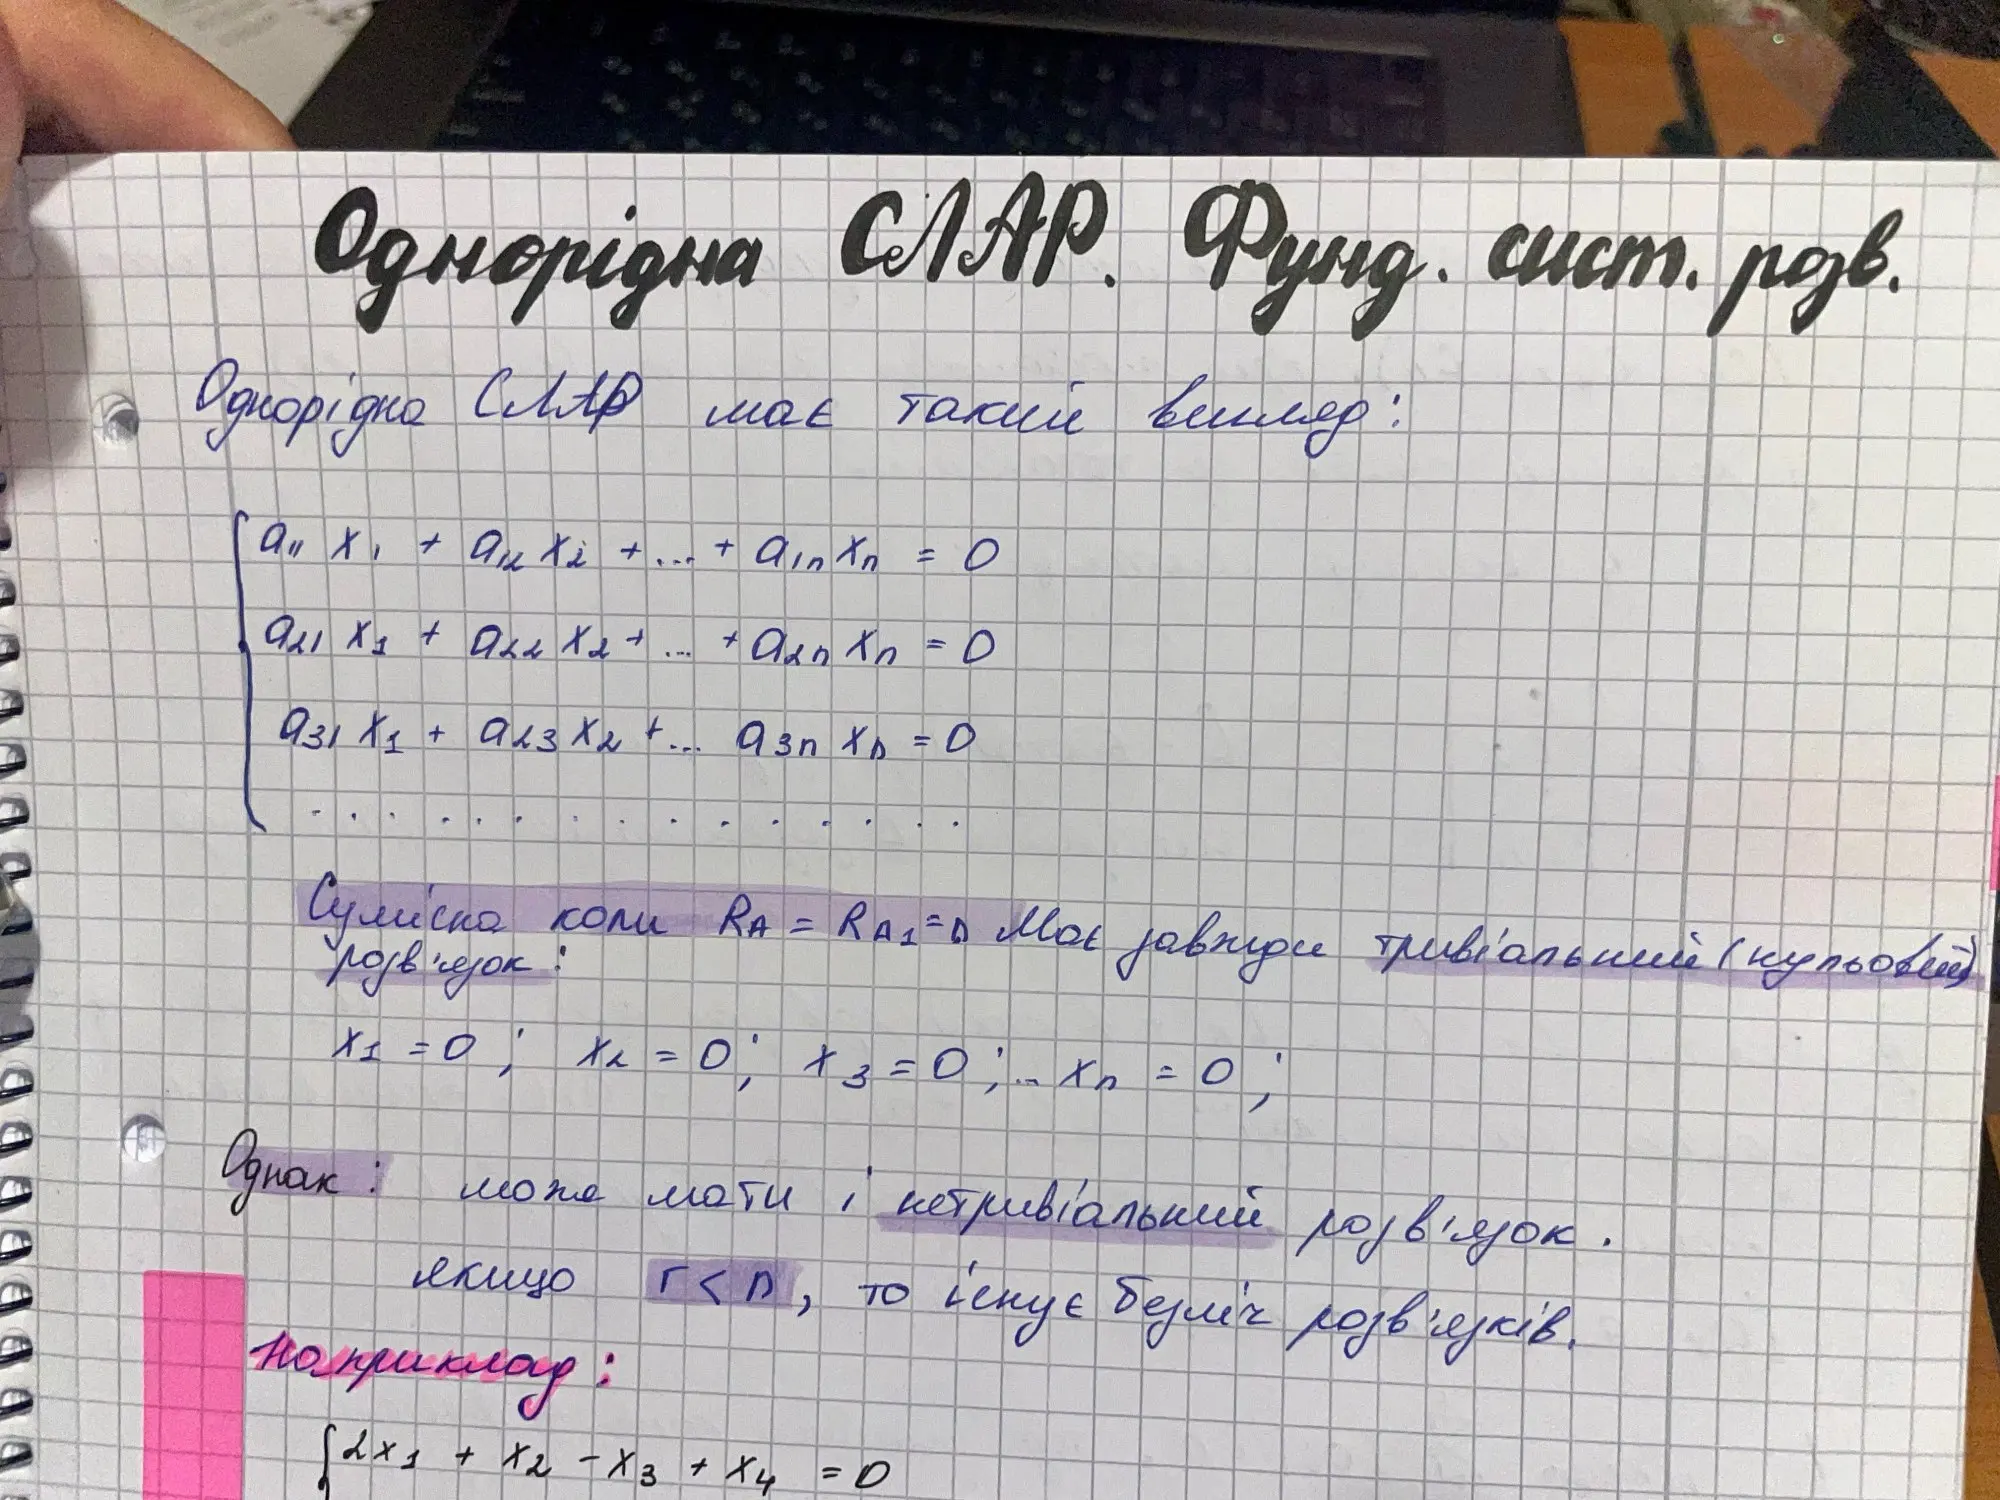 Однорідна СЛАР. Фунд. сист. розв.
Однорідна СЛАР має такий вигляд:
a₁₁ x₁ + a₁₂ x₂ + ... + a₁ₙ xₙ = 0
a₂₁ x₁ + a₂₂ x₂ + ... + a₂ₙ xₙ = 0
a₃₁ x₁ + a₂₃ x₂ + ... a₃ₙ xₙ = 0
. . . . . . . . . . . . . . .
Сумісна коли R_A = R_A1 = n Має завжди тривіальний (нульовий)
розв'язок:
x₁ = 0 ; x₂ = 0 ; x₃ = 0 ; ... xₙ = 0 ;
Однак: може мати і нетривіальний розв'язок.
якщо r < n, то існує безліч розв'язків.
Наприклад:
2x₁ + x₂ - x₃ + x₄ = 0